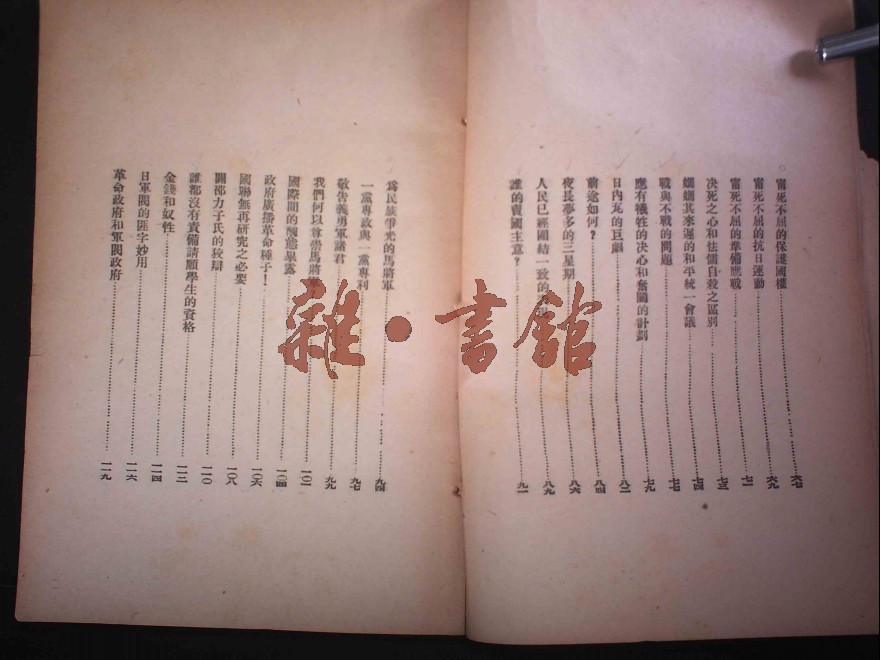 甯死不屈的保護國權 六七
甯死不屈的抗日運動 六九
甯死不屈的準備應戰 七一
決死之心和怯懦自殺之區別 七三
姍姍其來遲的和平統一會議 七四
戰與不戰的問題 七七
應有犧牲的决心和奮鬭的計劃 七九
日內瓦的豆劇 八二
前途如何？ 八四
夜長夢多的三星期 八六
人民已經團結一致的 八九
誰的賣國主意？ 九一
爲民族爭光的馬將軍 九四
一黨專政與一黨專利 九七
敬告義勇軍諸君 九九
我們何以尊崇馬將軍 一〇二
國際間的醜態暴露 一〇四
政府廣播革命種子！ 一〇六
國聯無再研究之必要 一〇八
闢邵力子氏的狡辯 一一〇
誰都沒有責備請願學生的資格 一一三
金錢和奴性 一一四
日軍閥的匪字妙用 一一六
革命政府和軍閥政府 一一九
雜·書館